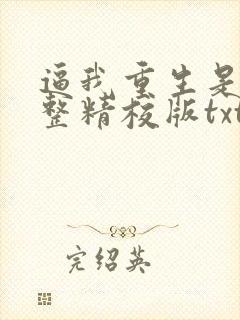 逼我重生是
整精校版txt
完绍英